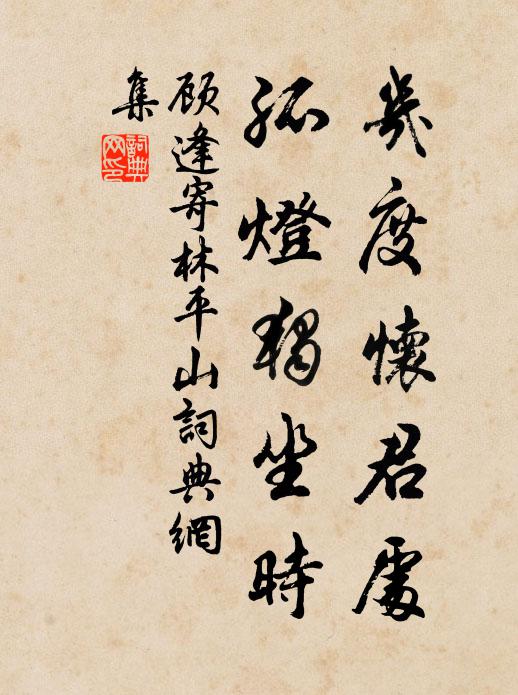 幾度懷君處
孤燈獨坐時
顾逢寄林平山詞典網
集
詞典
网印